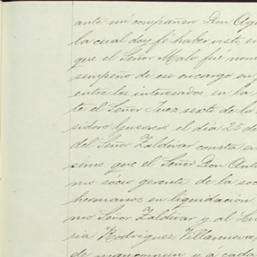 ante mi compañero Don Agu
la cual doy fé haber visto, en
que el Señor Malo fué nom
sempeño de ese encargo en
entre los interesados en la
to el Señor Juez sexto de la
sidoro Guerrero el dia 22 d
del Señor Zaldivar consta en
smo que el Señor Don Anto
mo sócio gerente de la soc
hermanos en liquidacion
mo Señor Zaldivar y al
ria Rodriguez Villanueva,
de mancomun y á cada